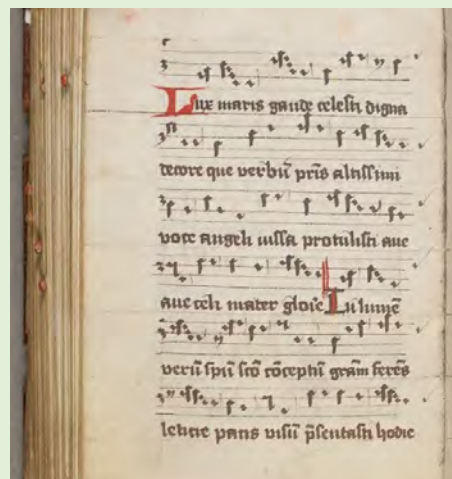 Lux maris gaude celesti digna
decore que verbū pr̄is altissimi
voce angeli iussa protulisti ave
ave celi mater glorie Tu lumē
verū spiu scō cōceptū grām ferēs
leticie patris visū p̄sentasti hodie